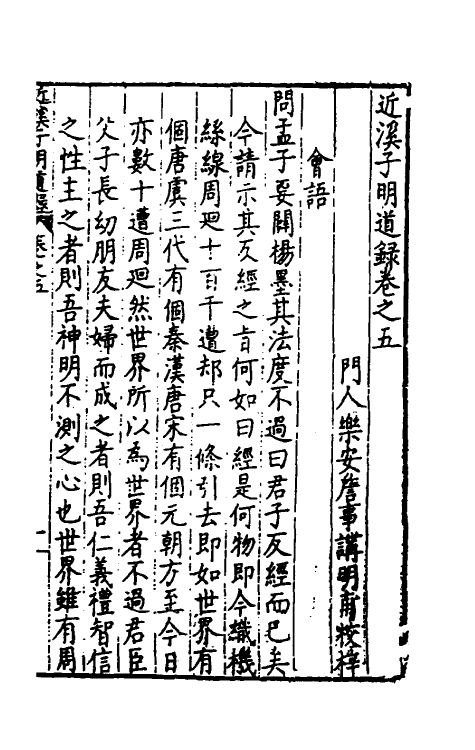 近溪子明道録卷之五
門人樂安詹事講明甫校梓
會語
問孟子要闢楊墨其法度不過曰君子反經而已矣
今請示其反經之旨何如曰經是何物即今織機
絲線周廻十百千遭却只一條引去即如世界有
個唐虞三代有個秦漢唐宋有個元朝方至今日
亦數十遭周廻然世界所以為世界者不過君臣
父子長幼朋友夫婦而成之者則吾仁義禮智信
之性主之者則吾神明不測之心也世界雖有周
近溪子明道録 卷之五